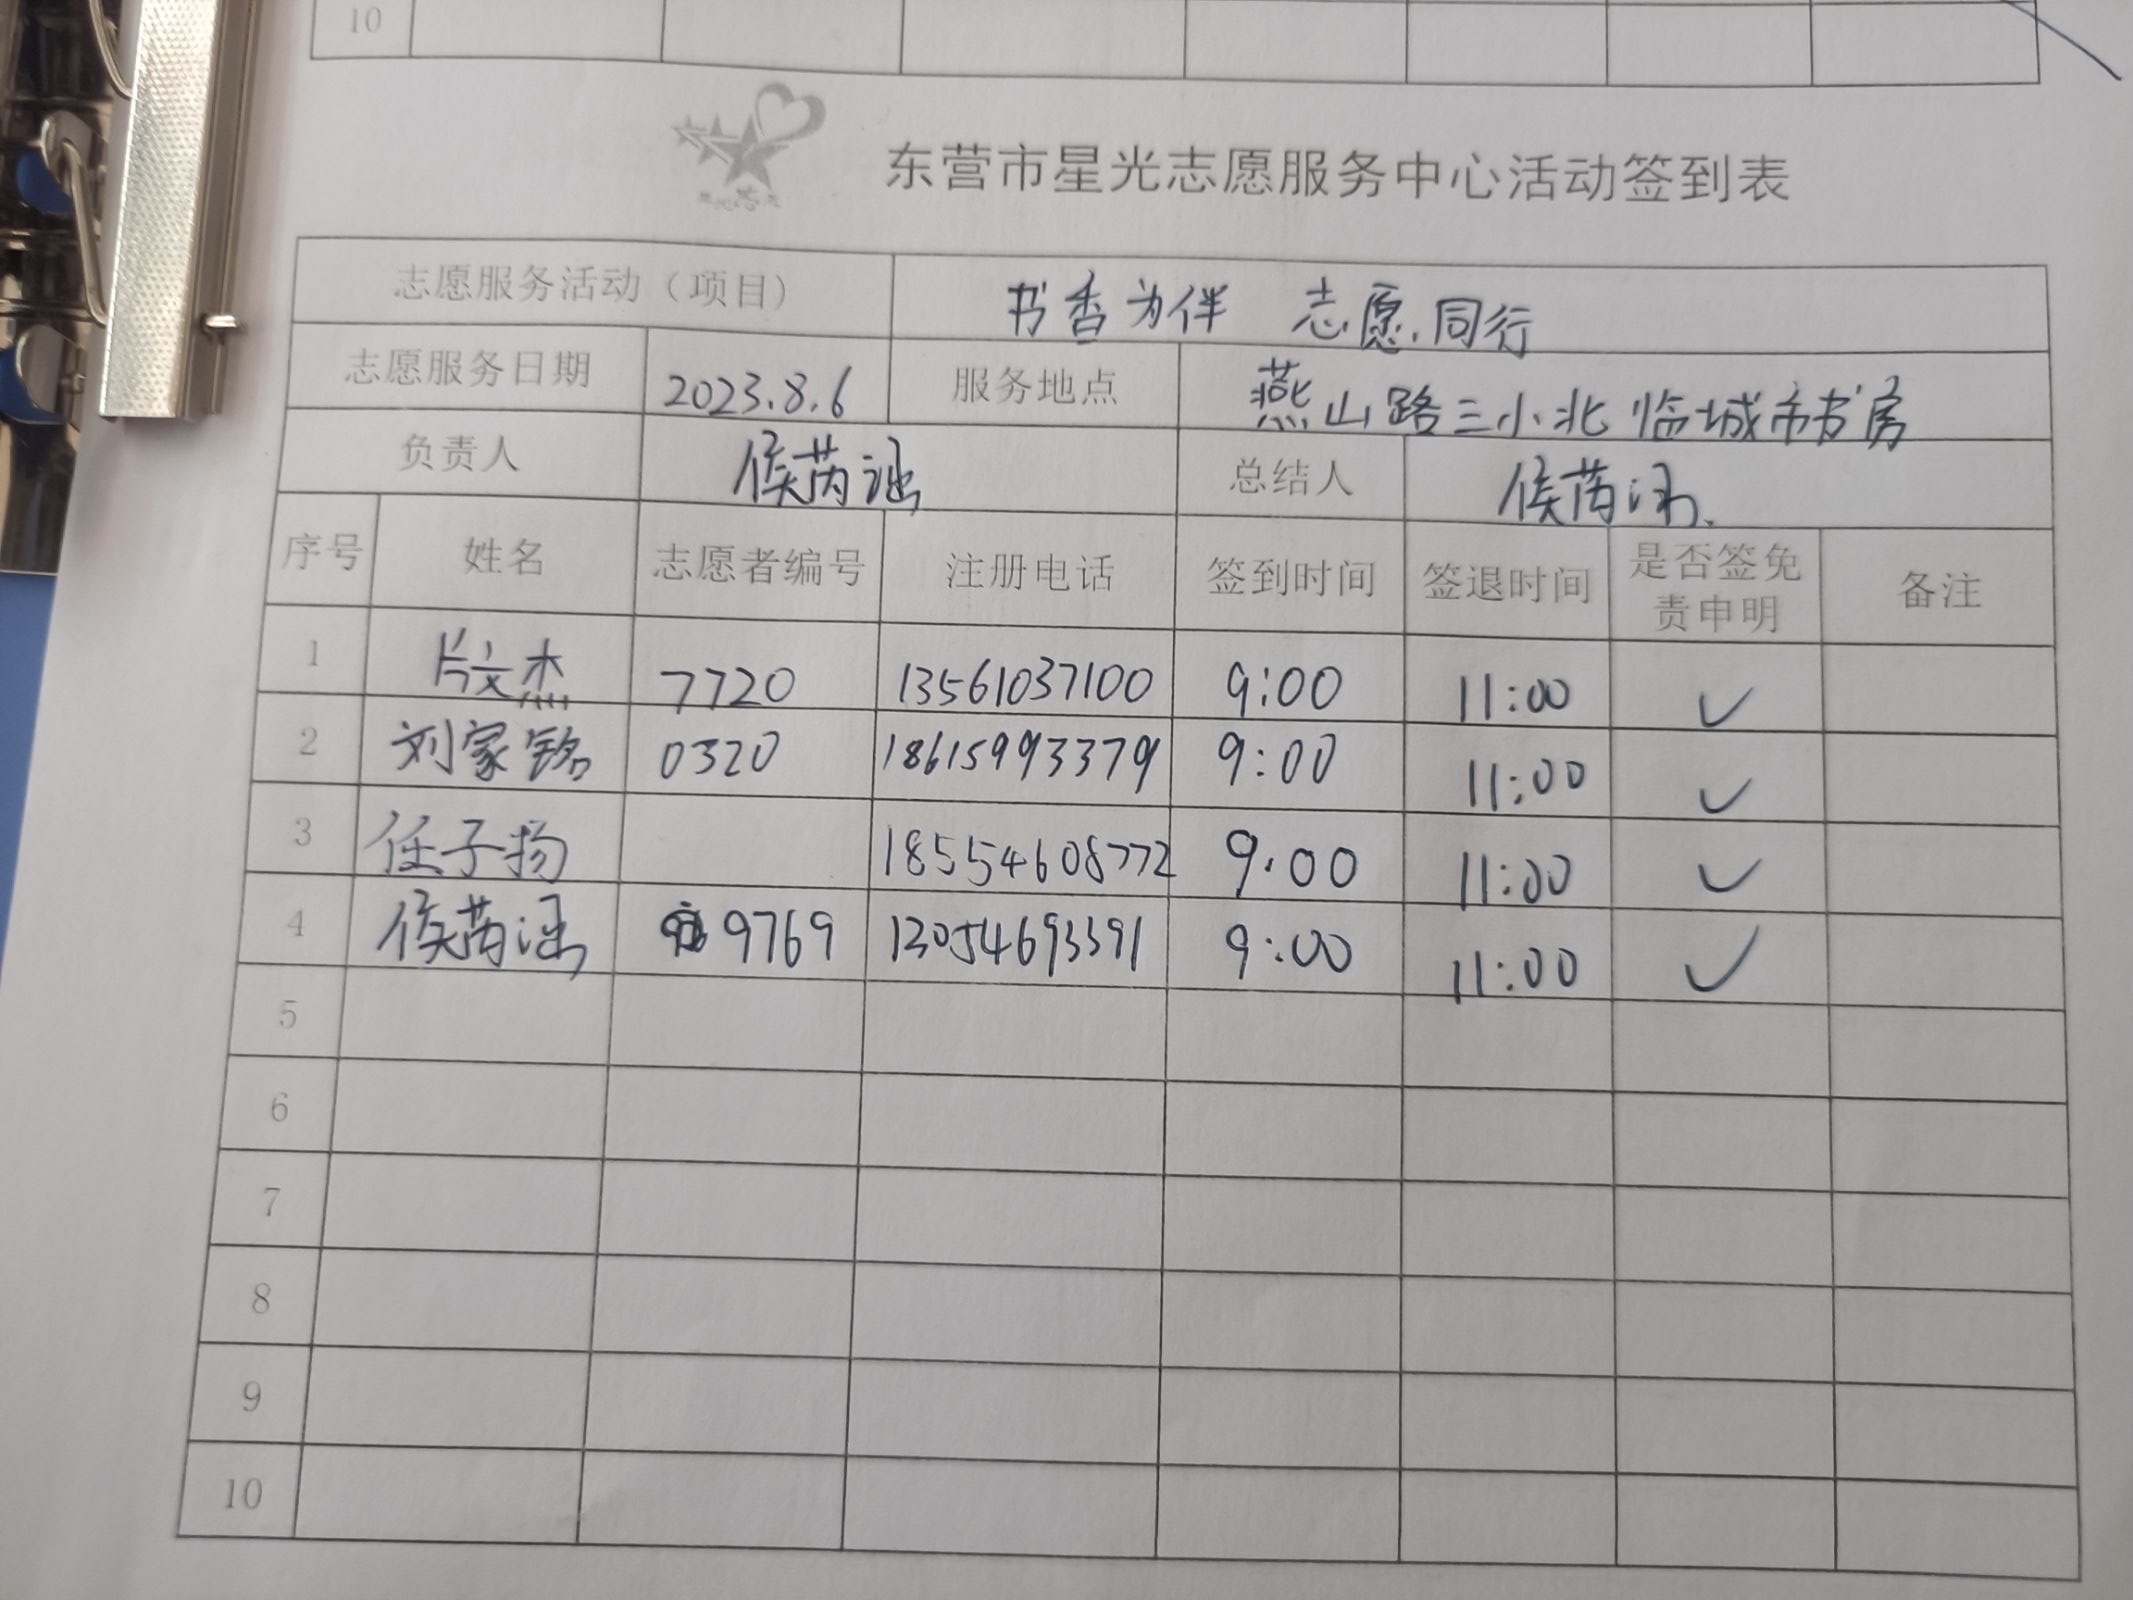 10
东营市星光志愿服务中心活动签到表
志愿服务活动（项目） 书香为伴 志愿同行
志愿服务日期 2023.8.6 服务地点 燕山路三小北临城市书房
负责人 侯芮涵 总结人 侯芮涵
序号 姓名 志愿者编号 注册电话 签到时间 签退时间 是否签免责申明 备注
1 片文杰 7720 13561037100 9:00 11:00 ✓
2 刘家铭 0320 18615993379 9:00 11:00 ✓
3 任子扬 18554608772 9:00 11:00 ✓
4 侯芮涵 9769 13054693391 9:00 11:00 ✓
5
6
7
8
9
10